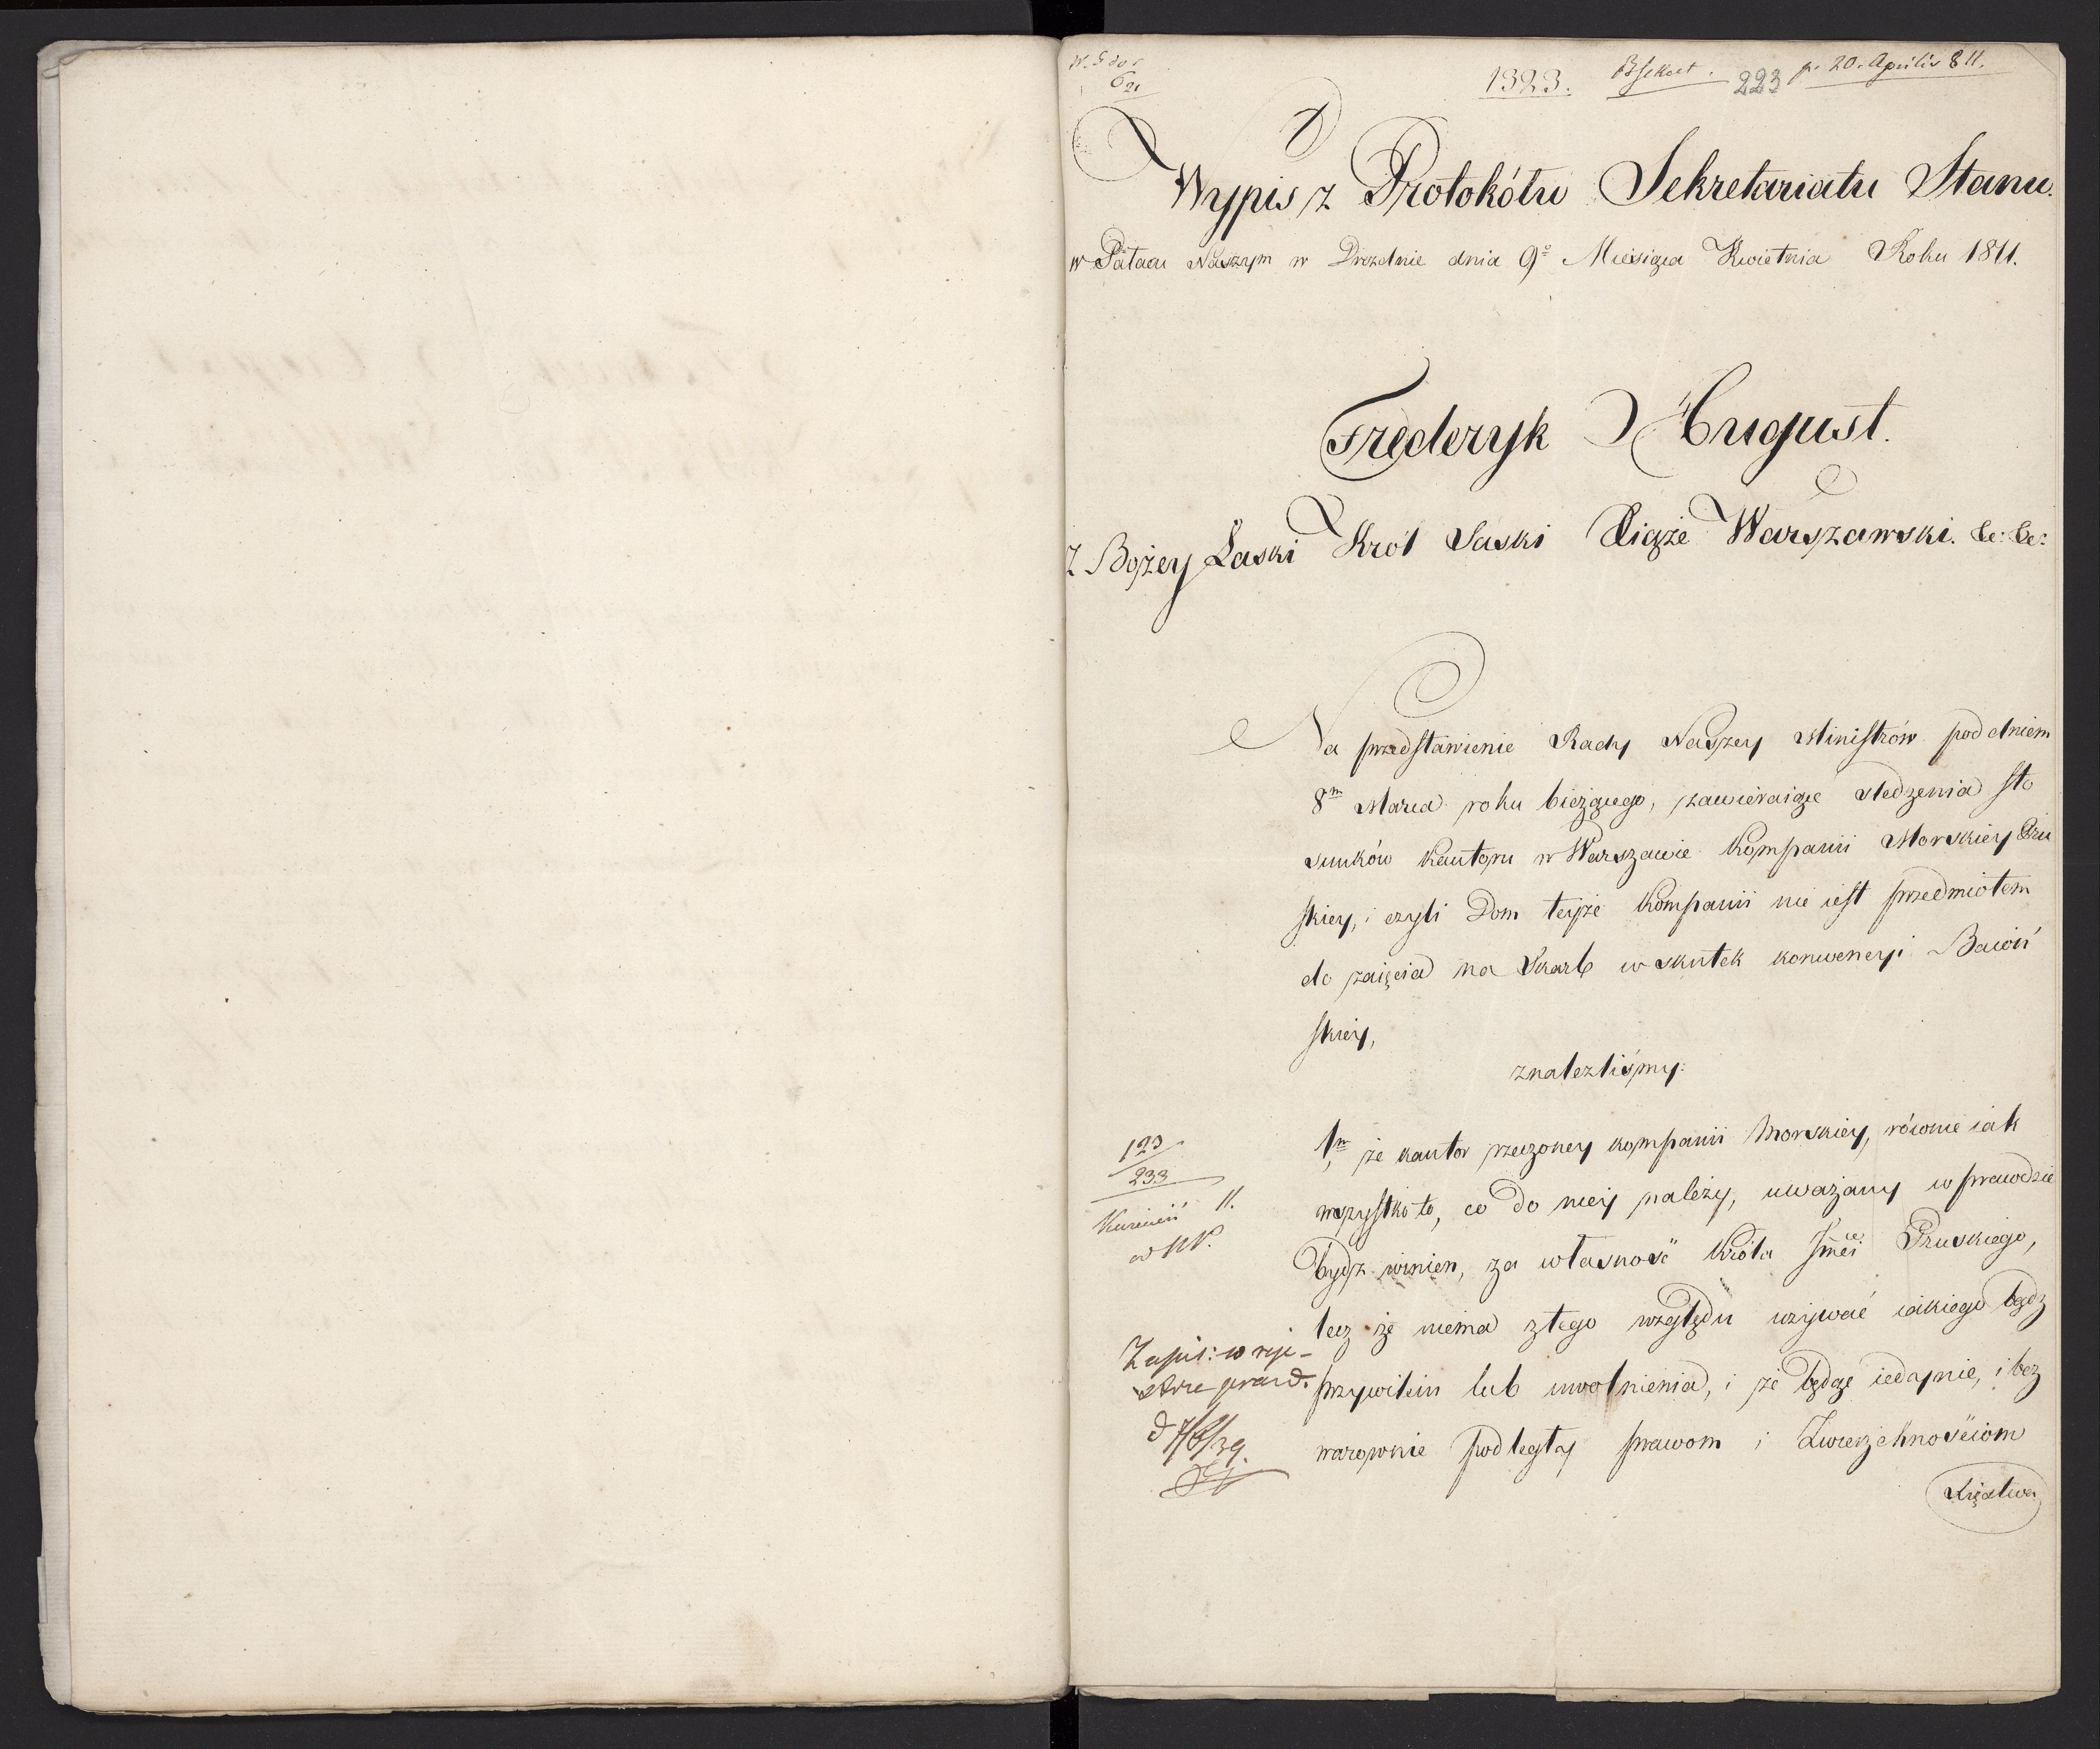 1323. 223 pr 20. Aprilis 811.
Wypis z Protokółu Sekretariatu Stanu.
w Pałacu Naszym w Dreznie dnia 9º Miesiąca Kwietnia Roku 1811.
Frederyk August.
Z Bożey Łaski Krol Saski Xiąże Warszawski. &c: &c:
Na przedstawienie Rady Naszey Ministrów pod dniem
8m Marca roku bieżącego, zawieraiące śledzenia sto
sunków kantoru w Warszawie Kompanii Morskiey Pru
skiey, i czyli Dom teyże Kompanii nie iest przedmiotem
do zaięcia na Skarb w skutek konwencyi Baioń
skiey,
znalezliśmy:
1m że kantor rzeczoney kompanii Morskiey, równie iak
wszystko to, co do niey należy, uważany w prawdzie
bydź winien, za własność Króla Jmci Pruskiego,
lecz że niema ztego względu używać iakiego bądź
przywileiu lub uwolnienia, i że będąc iedynie, i bez
warownie podległy prawom i Zwierzchnościom
Xięstwa
123
233
11.
Zapis: w reje-
strze prawd.